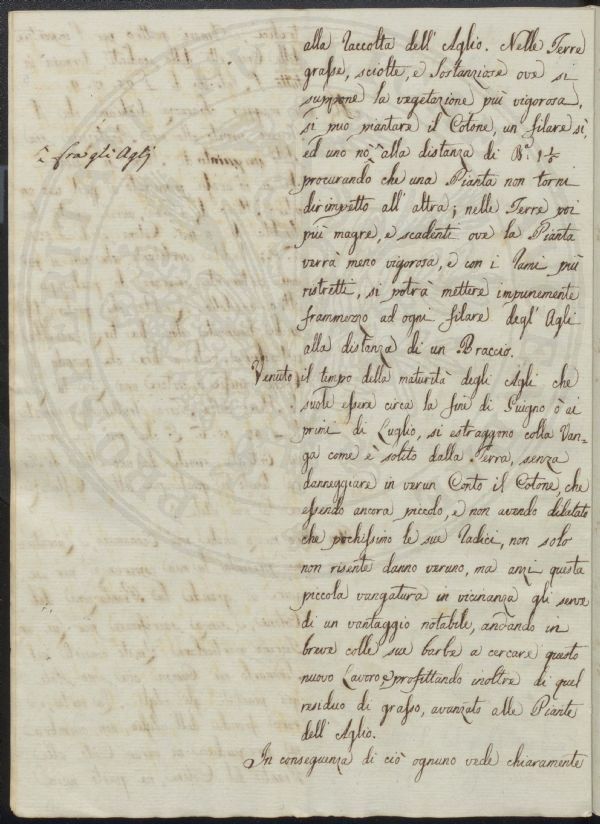 alla Raccolta dell' Aglio. Nelle Terre
grasse, sciolte, e Sostanziose ove si
suppone la vegetazione più vigorosa,
si può piantare il Cotone, un filare sì,
ed uno nò ^ alla distanza di B.ª 1 1/5
^ fra gli Aglj
procurando che una Pianta non torni
dirimpetto all' altra; nelle Terre poi
più magre, e scadenti ove la Pianta
verrà meno vigorosa, e con i Rami più
ristretti, si potrà mettere impunemente
frammezzo ad ogni filare degl' Agli
alla distanza di un Braccio.
Venuto il tempo della maturità degli Agli che
suole essere circa la fine di Giugno ò ai
primi di Luglio, si estraggono colla Van=
ga come è solito dalla Terra, senza
danneggiare in verun Conto il Cotone, che
essendo ancora piccolo, e non avendo dilatate
che pochissimo le sue Radici, non solo
non risente danno veruno, ma anzi questa
piccola vangatura in vicinanza gli serve
di un vantaggio notabile, andando in
breve colle sue barbe a cercare questo
nuovo Lavoro e profittando inoltre di quel
residuo di grasso, avanzato alle Piante
dell' Aglio.
In conseguenza di ciò ognuno vede chiaramente